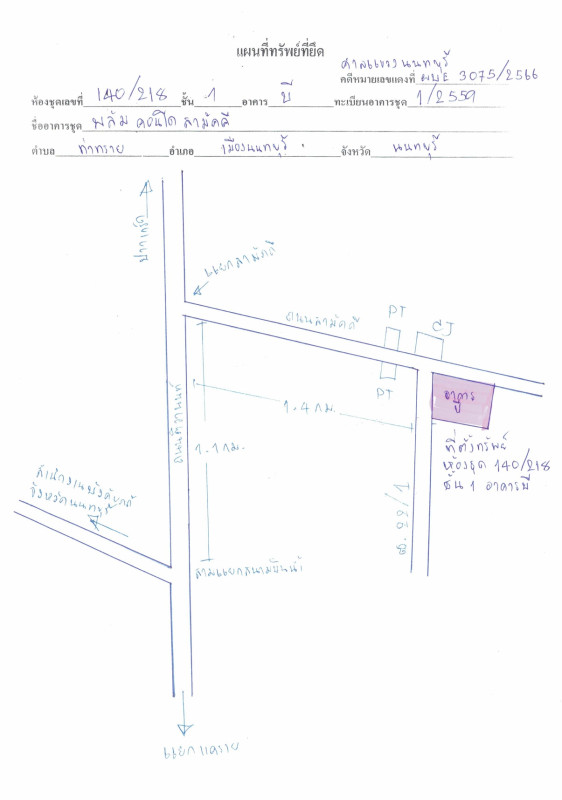 แผนที่ทรัพย์ที่ยึด
ศาลแขวงนนทบุรี
คดีหมายเลขแดงที่ ผบE 3075/2566
ห้องชุดเลขที่ 140/218 ชั้น 1 อาคาร บี ทะเบียนอาคารชุด 1/2559
ชื่ออาคารชุด พลัม คอนโด สามัคคี
ตำบล ท่าทราย อำเภอ เมืองนนทบุรี จังหวัด นนทบุรี
ปากเกร็ด
แยกสามัคคี
ถนนสามัคคี
PT
CJ
PT
อาคาร
1.4 กม.
ถนนติวานนท์
1.1 กม.
ที่ตั้งทรัพย์
ห้องชุด 140/218
ชั้น 1 อาคารบี
สำนักงานบังคับคดี
จังหวัดนนทบุรี
ซ.22/1
สามแยกสนามบินน้ำ
แยกแคราย